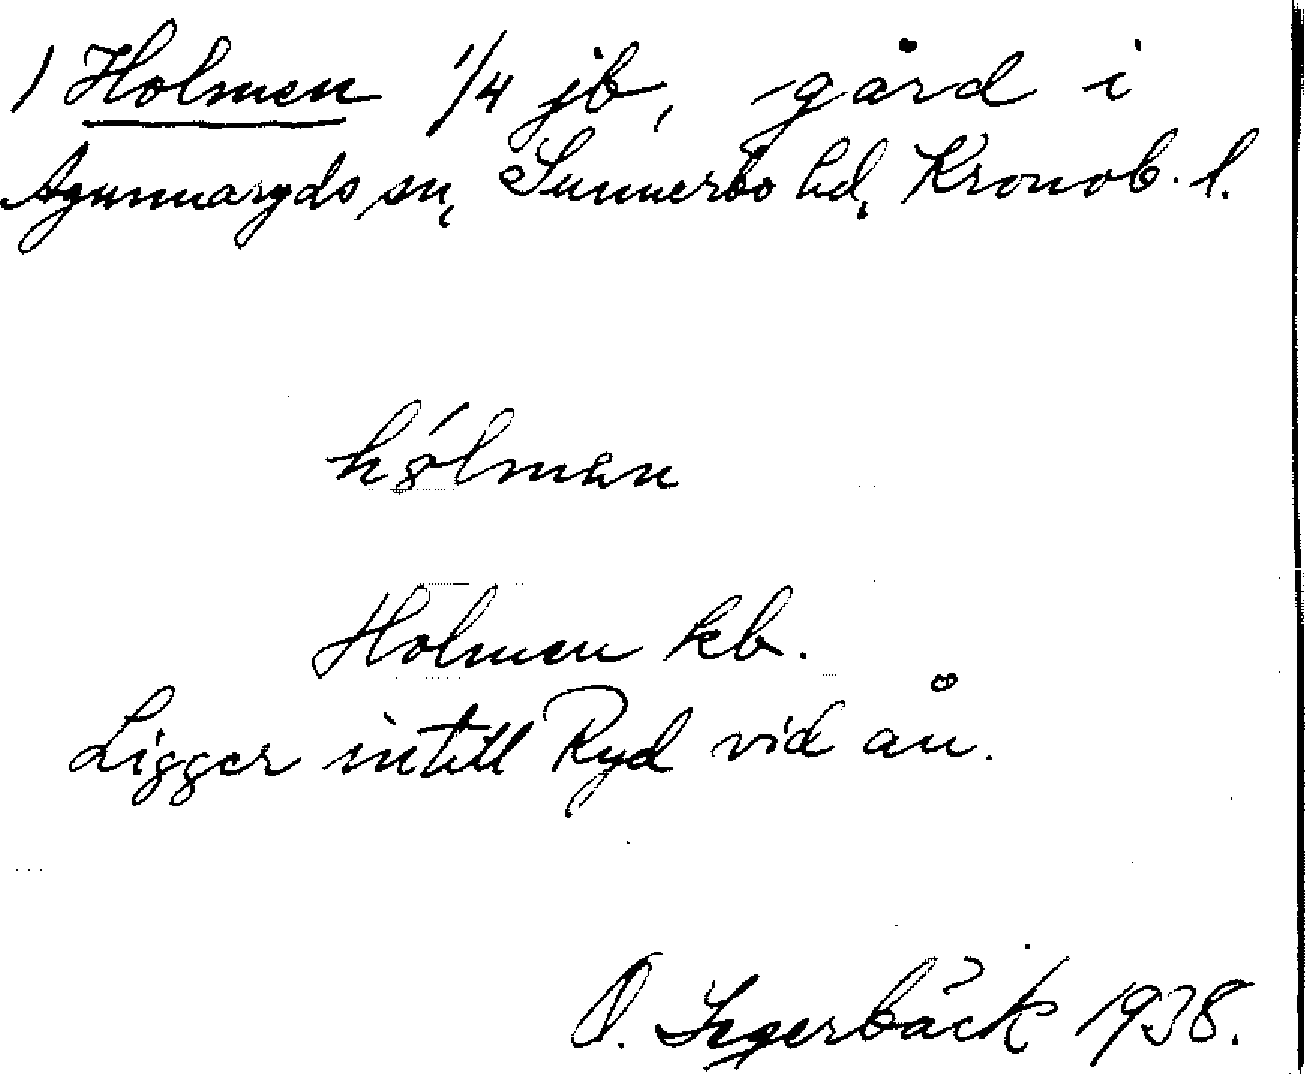 1 Holmen 1/4 jb, gård i
Agunnaryds sn, Sunnerbo hd, Kronob. l.
hólmen
Holmen kb.
Ligger intill Ryd vid ån.
O. Segerbäck 1938.